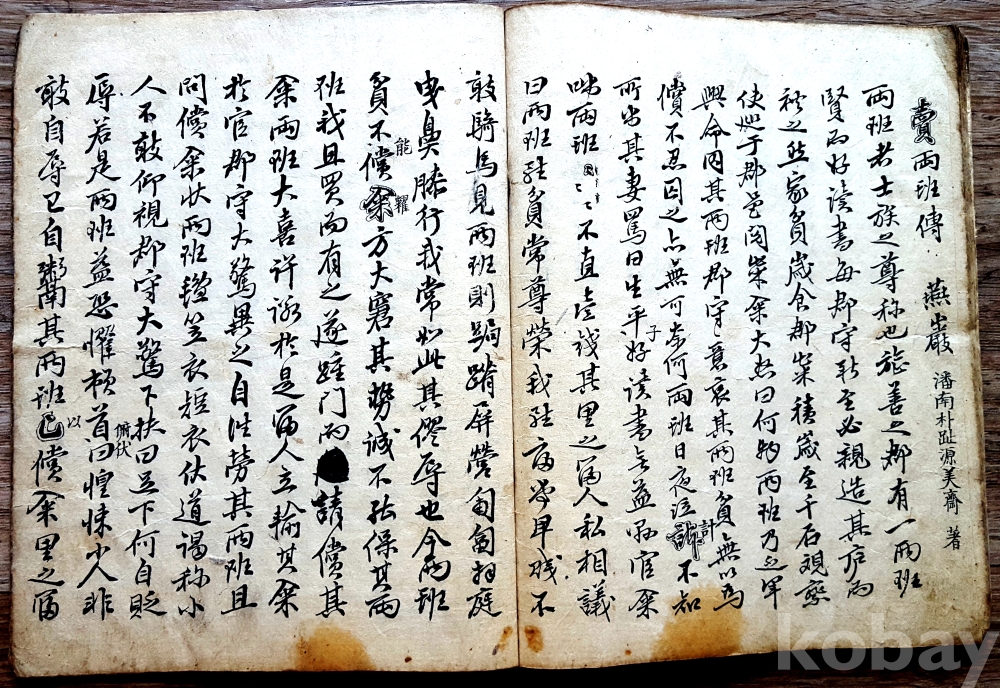 賣兩班傳 燕巖 潘南朴趾源美齋 著
兩班者士族之尊称也旌善之郡有一兩班
賢而好讀書每郡守新至必親造其庐而
礼之然家貧歲食郡糶積歲至千石觀察
使巡于郡邑閱糶籴大怒曰何物兩班乃乏軍
興命囚其兩班郡守意哀其兩班貧無以爲
償不忍囚之亦無可奈何兩班日夜泣計不知
所出其妻罵曰生平子好讀書無益縣官籴
咄兩班〻〻不直一錢其里之富人私相議
曰兩班雖貧常尊榮我雖富常卑賤不
敢騎馬見兩班則跼蹜屏營匍匐拜庭
曳鼻膝行我常如此其僇辱也今兩班
貧不能償糴方大窘其勢誠不能保其兩
班我且買而有之遂踵門而請償其
籴兩班大喜許諾於是富人立輸其籴
於官郡守大驚異之自往勞其兩班且
問償籴狀兩班氈笠衣短衣伏道謁称小
人不敢仰視郡守大驚下扶曰足下何自貶
辱若是兩班益恐懼頓首俯伏曰惶悚小人非
敢自辱已自鬻其兩班以償籴里之富
kobay